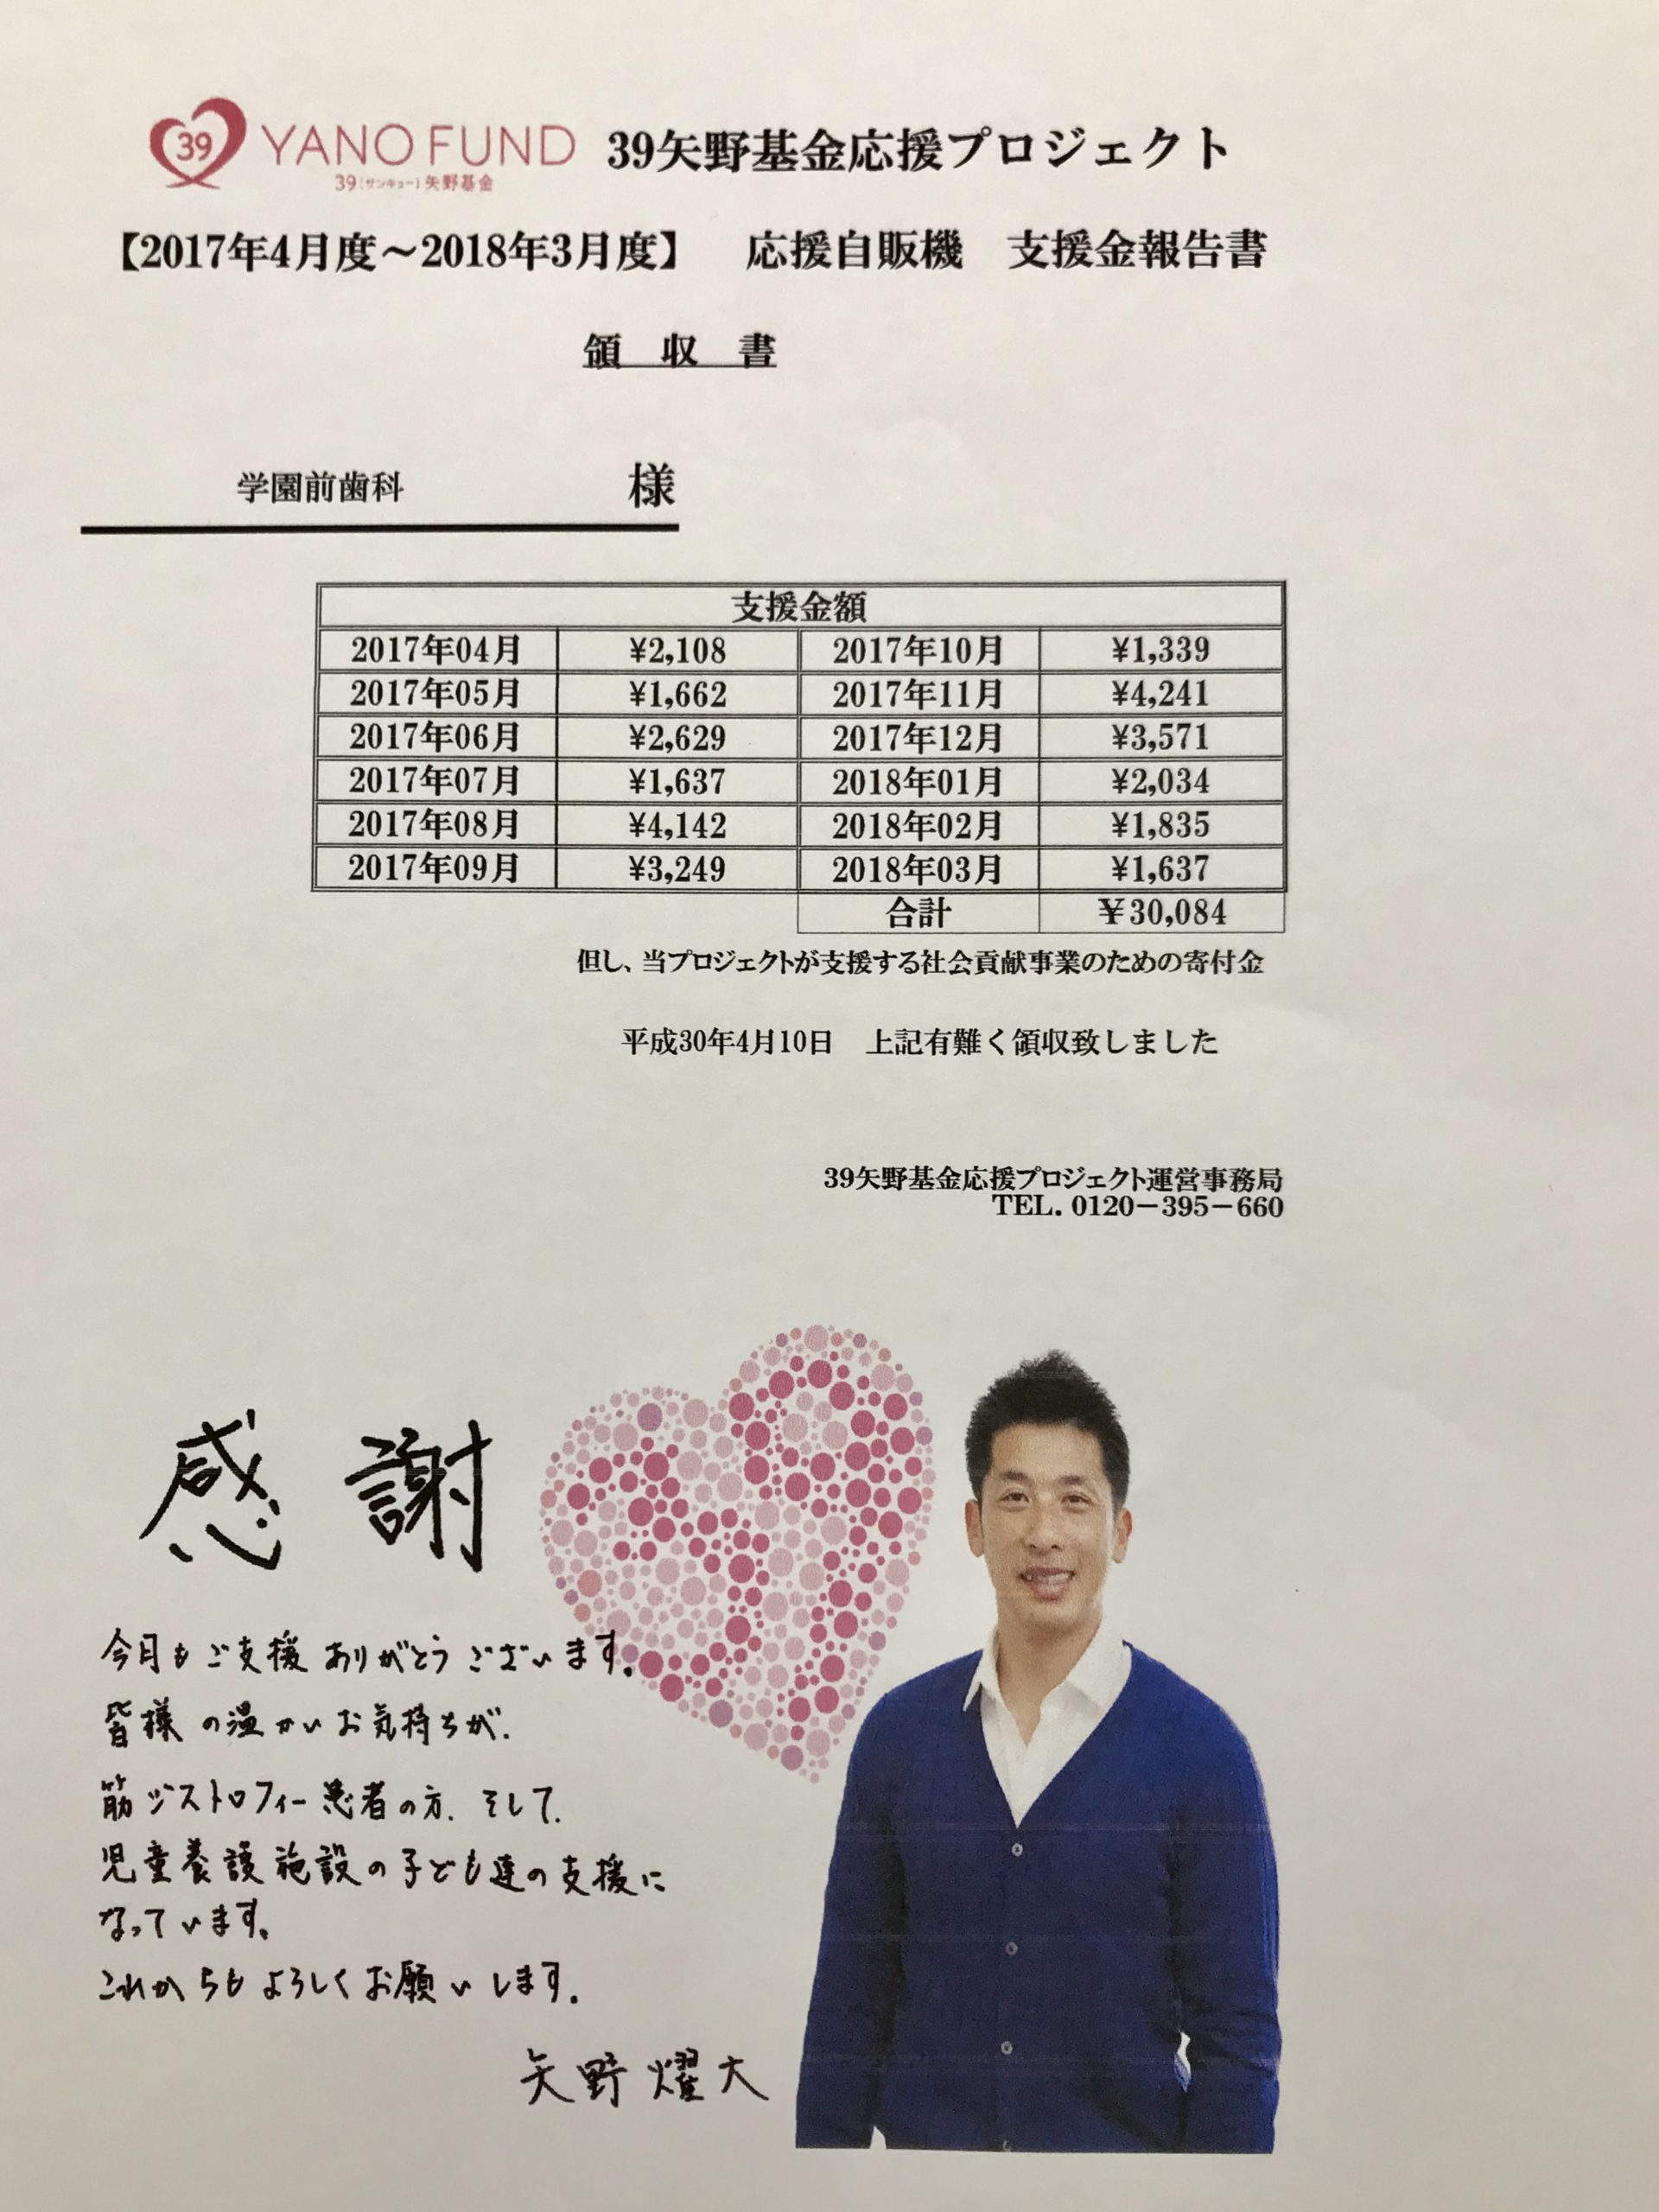 39 YANO FUND 39矢野基金応援プロジェクト
39(サンキュー)矢野基金
【2017年4月度～2018年3月度】 応援自販機 支援金報告書
領 収 書
学園前歯科 様
支援金額
2017年04月 ¥2,108 2017年10月 ¥1,339
2017年05月 ¥1,662 2017年11月 ¥4,241
2017年06月 ¥2,629 2017年12月 ¥3,571
2017年07月 ¥1,637 2018年01月 ¥2,034
2017年08月 ¥4,142 2018年02月 ¥1,835
2017年09月 ¥3,249 2018年03月 ¥1,637
合計 ￥30,084
但し、当プロジェクトが支援する社会貢献事業のための寄付金
平成30年4月10日 上記有難く領収致しました
39矢野基金応援プロジェクト運営事務局
TEL. 0120－395－660
感謝
今月もご支援ありがとうございます。
皆様の温かいお気持ちが、
筋ジストロフィー患者の方、そして、
児童養護施設の子ども達の支援に
なっています。
これからもよろしくお願いします。
矢野燿大